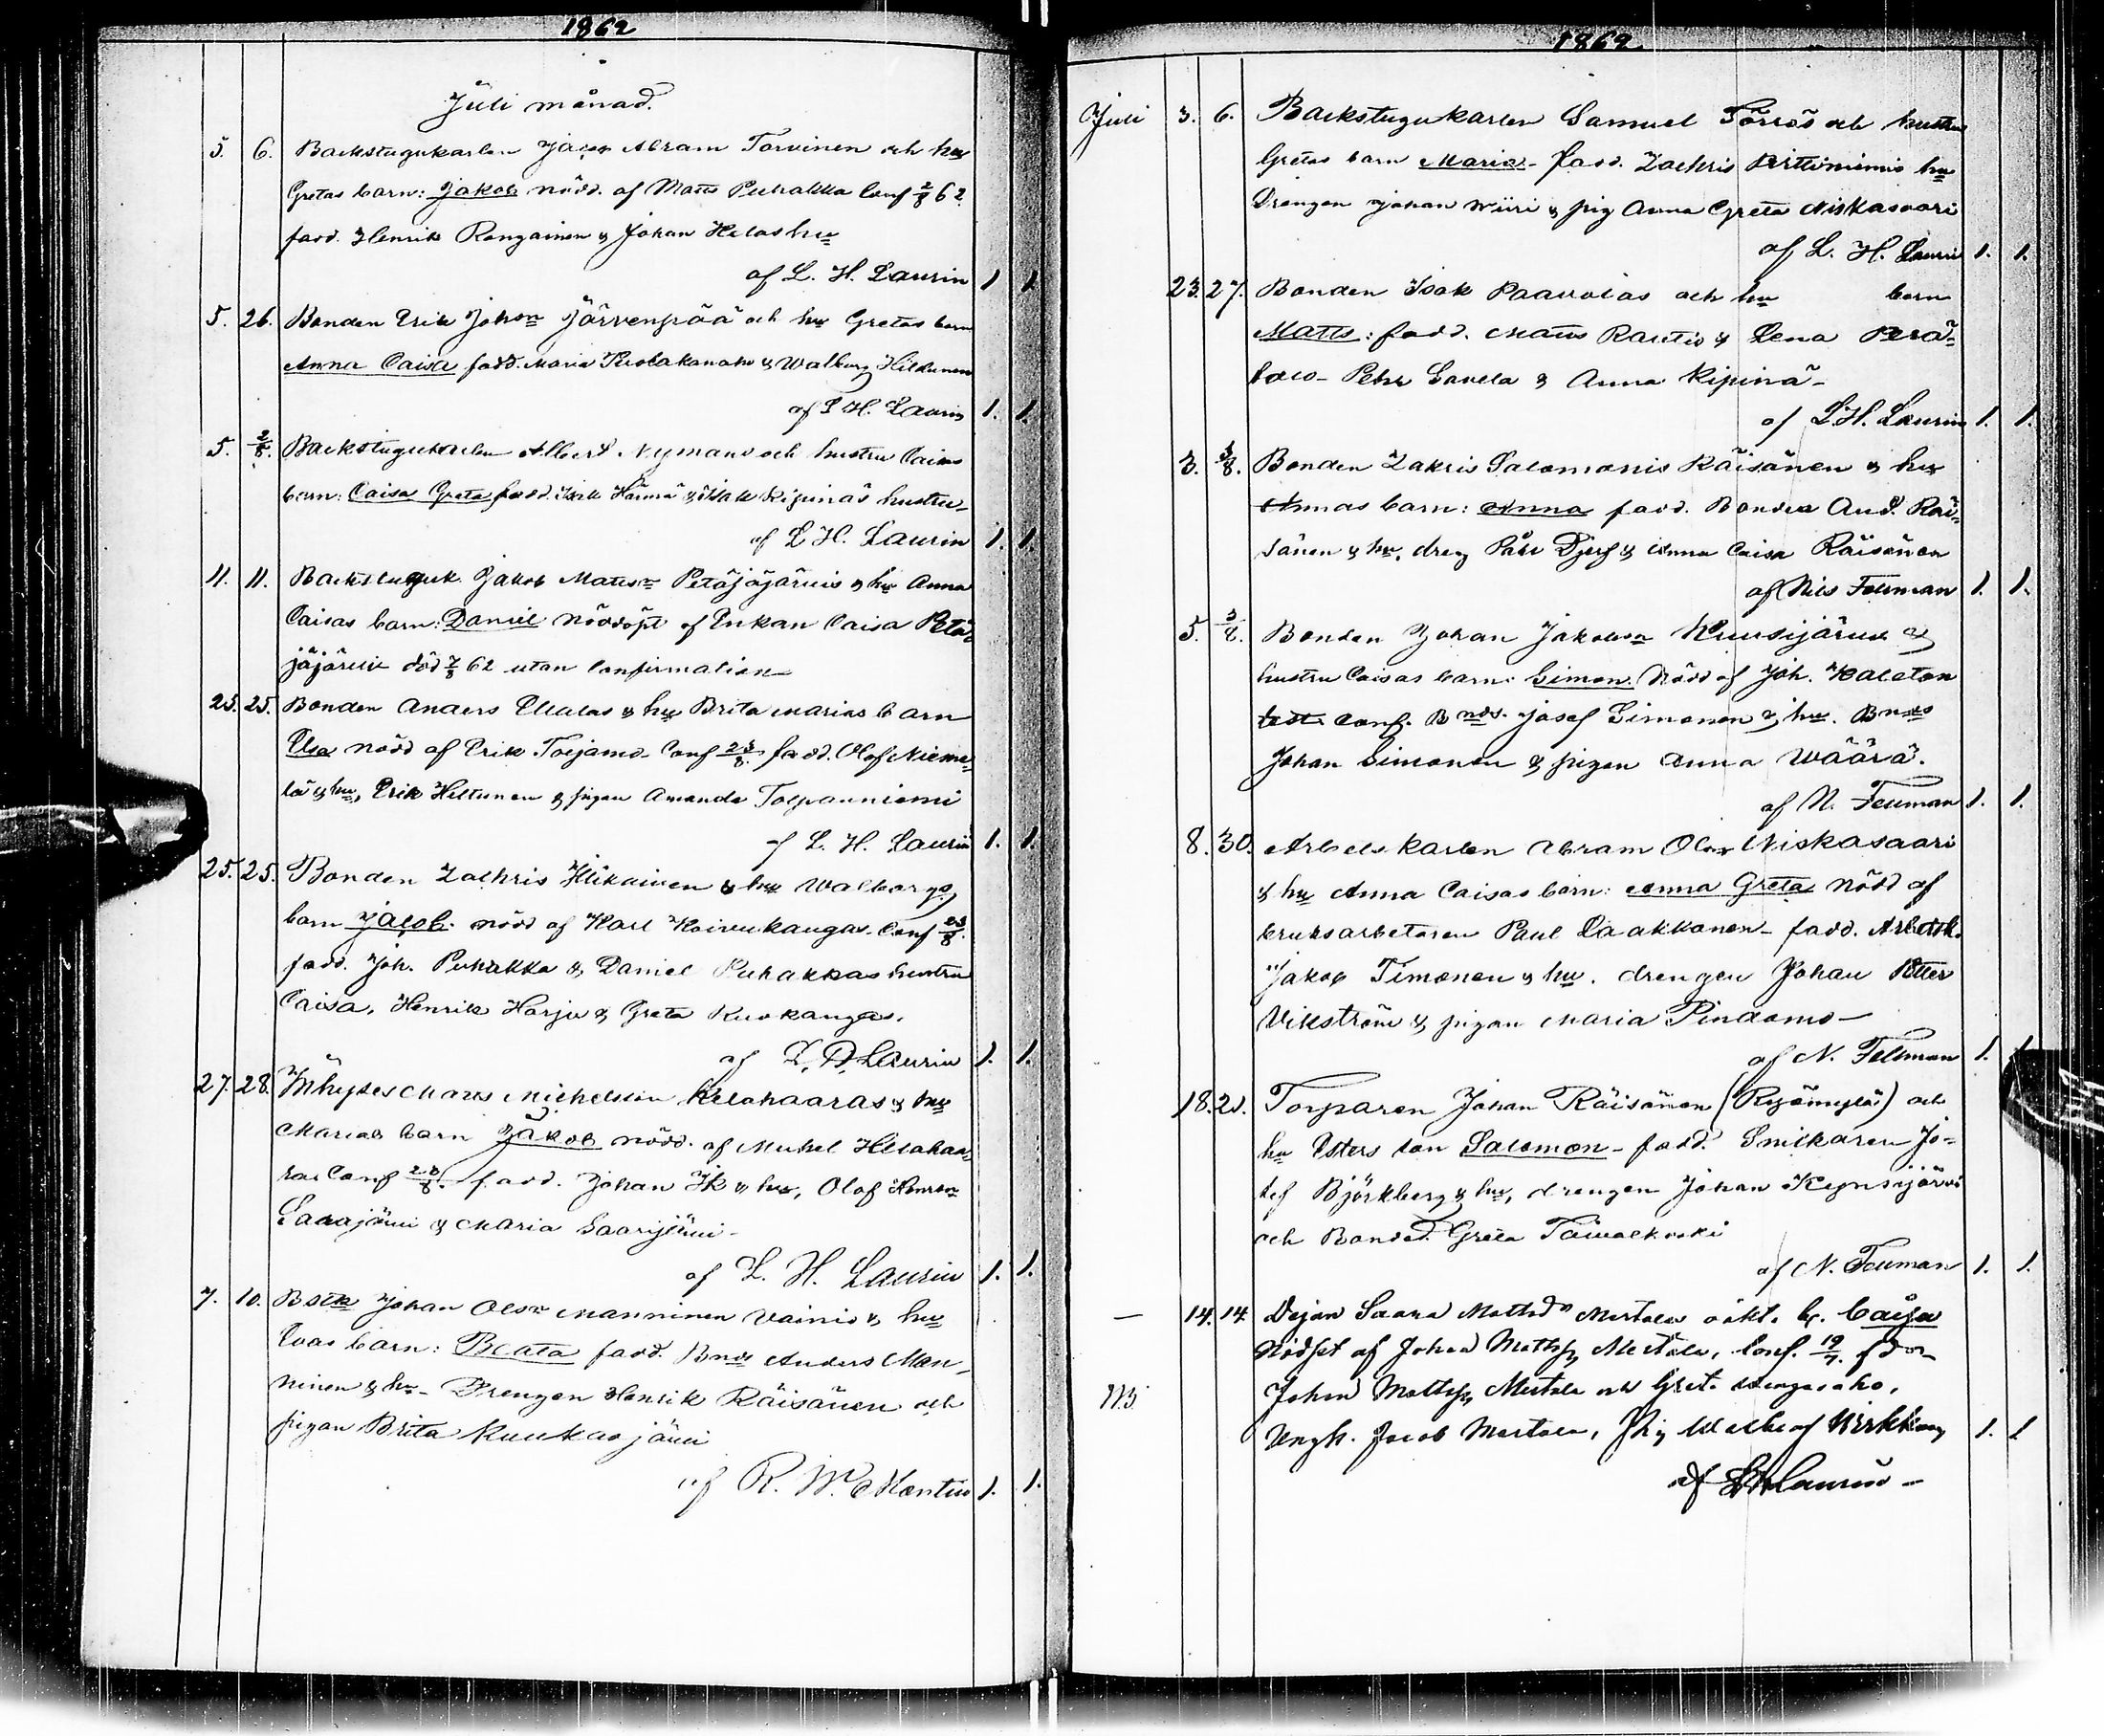 1862
Juli månad.
5. 6. Backstugukarlen Jacob Abram Torvinen och hu
Gretas barn: Jakob nödd. af Matts Puhakka Conf 2/8 62.
fadd. Henrik Rongainen & Johan Helas hu
af L. H. Laurin 1 1.
5. 26. Bonden Erik Johsn Järvenpää och hu Gretas barn
Anna Caisa fadd. Maria & Walborg Hiltunen
af L H. Laurin 1. 1.
5. 2/8. Backstugukarlen Albert Nymans och hustru Caisas
barn: Caisa Greta fadd. Isak Härmä & Isak Kipinäs hustru
af L H. Laurin 1. 1.
11. 11. Backstuguk. Jakob Mattsn Petäjäjärvis & hu Anna
Caisas barn: Daniel nöddöpt af Enkan Caisa Petä-
jäjärvi död 7/8 62 utan Confirmation
25. 25. Bonden Anders Ulalas & hu Brita Marias barn
Elsa nödd af Erik Torjamo. Conf 23/8. fadd. Olof Nieme-
lä & hu, Erik Hiltunen & pigan Amanda Tolpanniemi
af L. H. Laurin 1. 1.
25. 25. Bonden Zachris Hiikainen & hu Walborgs
barn Jacob. nödd af Karl Koivukangas. Conf 23/8.
fadd. Joh. Puhakka & Daniel Puhakkas hustru
Caisa, Henrik Harju & Greta Kuokangas.
af L. H. Laurin 1. 1.
27. 28. Inhyses Matts Michelsson Kelohaaras & hu
Marias barn Jakob nödd. af Mickel Kelohaa-
ra Conf 23/8. fadd. Johan & hu, Olof Henrson
Saarijärvi & Maria Saarijärvi
af L. H. Laurin 1. 1.
7. 10. Bstk Johan Olsn Manninen Vainio & hu
Evas barn: Beata fadd. Bnds Anders Man-
ninen & hu - Drengen Henrik Räisänen och
pigan Brita Kuukasjärvi
af R. W. Montin 1. 1.
1862
Juli 3. 6. Backstugukarlen Samuel Törrös och hustru
Gretas barn Maria - fadd. Zachris Pirttiniemis hu
Drengen Johan Wiiri & pig Anna Greta Niskasaari
af L. H. Laurin 1. 1.
23. 27. Bonden Isak Paavolas och hu barn
Matts: fadd. Matts Rautio & Lena Perä-
talo - Pehr Savela & Anna Kipinä -
af L.H. Laurin 1. 1.
3. 3/8. Bonden Zakris Salomonis Räisänen & hu
Annas barn: Anna fadd. Bonden And. Räi-
sänen & hu, dreng Påhl Djerf & Anna Caisa Räisänen
af Nils Fellman 1. 1.
5. 3/8. Bonden Johan Jakobsn Kuusijärvi &
hustru Caisas barn: Simon. Nödd af Joh. Kaleton
Conf. Bnds. Josef Simonen & hu. Bnds
Johan Simonen & pigan Anna Wäärä.
af N. Fellman 1. 1.
8. 30. Arbetskarlen Abram Olsn Niskasaari
& hu Anna Caisas barn: Anna Greta nödd af
bruksarbetaren Paul Laakkonen - fadd. Arbetsk.
Jakob Timonen & hu. drengen Johan Petter
Vikström & pigan Maria Pindamo -
af N. Fellman 1. 1
18. 21. Torparen Johan Räisänen ( ) och
hu Esters son Salomon - fadd. Snickaren Jo-
sef Björkberg & hu, drengen Johan Kynsijärvi
och Bonded. Greta Taivalkoski
af N. Fellman 1. 1.
— 14. 14. Dejan Saara Mattsdr Mertala oäkt. b. Caisa
Nödpt af Johan Mattsson Mertala, Conf. 19/7. fdr
NB Johan Mattsson Mertala och Greta
Yngk. Jacob Mertala, Pig 1. 1
af LHLaurin -